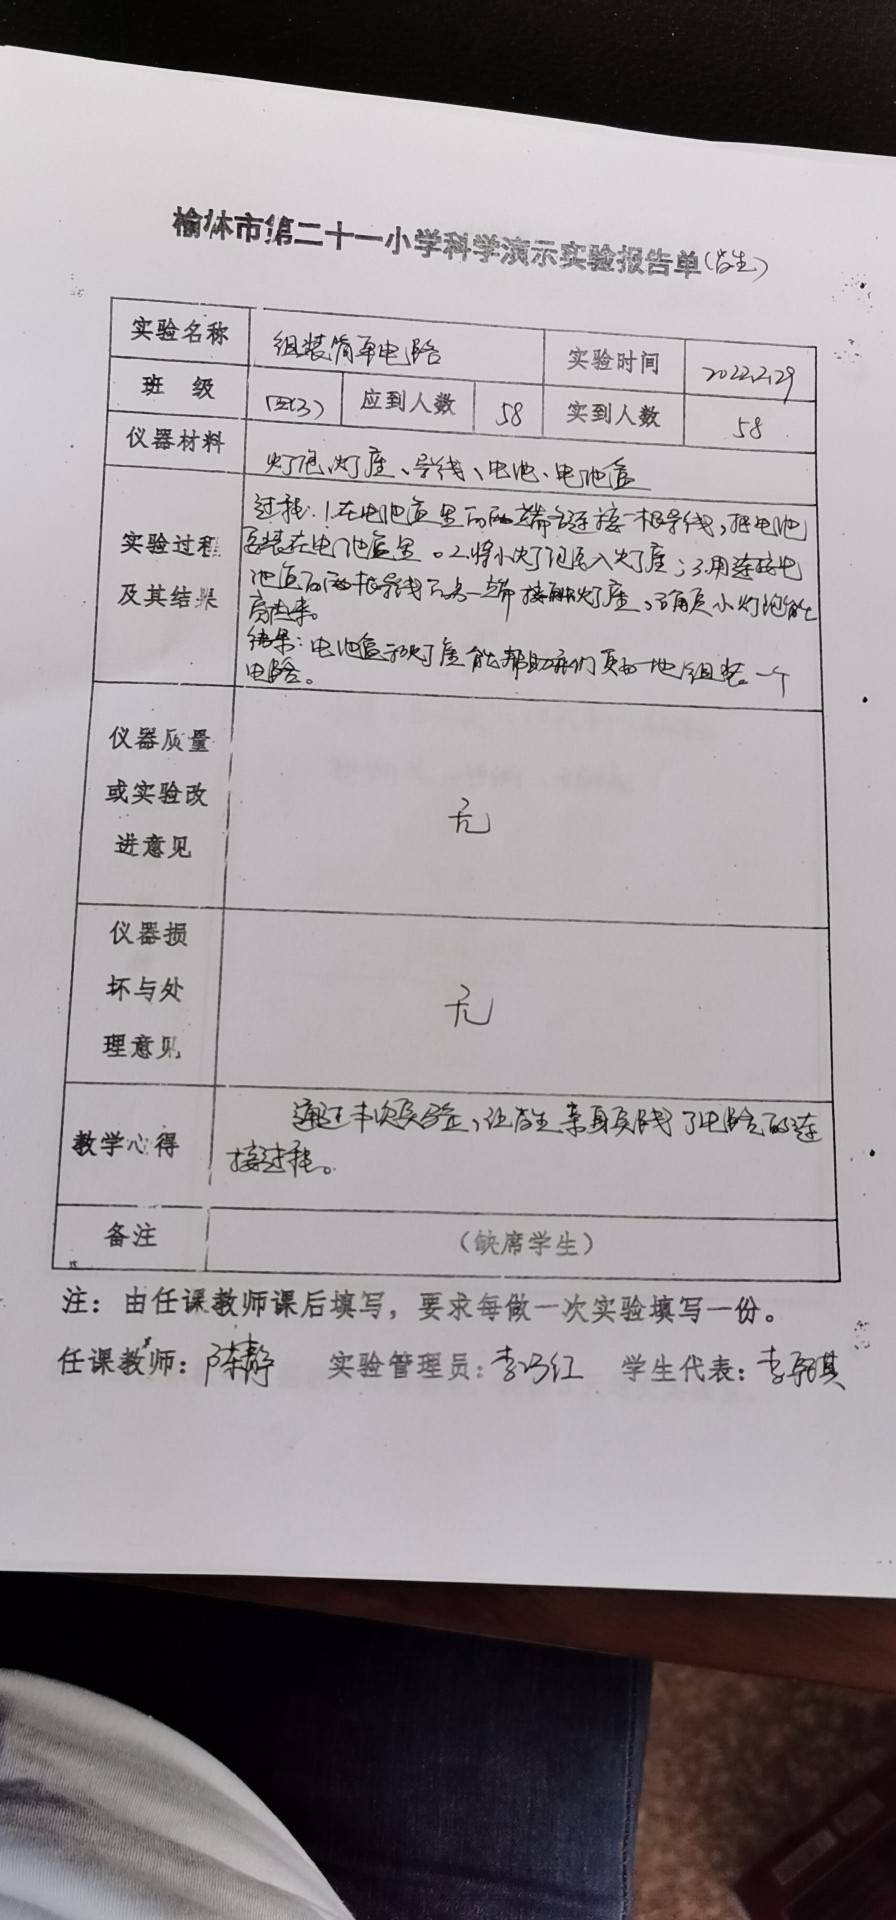 榆林市第二十一小学科学演示实验报告单(学生)
实验名称 组装简单电路 实验时间 2022.2.29
班 级 四(3) 应到人数 58 实到人数 58
仪器材料 灯泡、灯座、导线、电池、电池盒
实验过程
及其结果
过程:1.在电池盒里的两端各连接一根导线,把电池
安装在电池盒里。2.将小灯泡装入灯座;3.用连接电
池盒的两根导线的另一端接触灯座,确定小灯泡能
亮起来。
结果:电池盒和灯座能帮助我们更好地组装一个
电路。
仪器质量
或实验改
进意见
无
仪器损
坏与处
理意见
无
教学心得
通过本次实验,让学生亲身实践了电路的连
接过程。
备注 (缺席学生)
注:由任课教师课后填写,要求每做一次实验填写一份。
任课教师:陈静 实验管理员:李巧红 学生代表:李